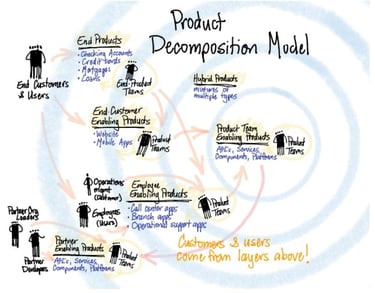 Product
Decomposition Model
End Products
• Checking Accounts
• Credit Cards
• Mortgages
• Loans
End Customers
& Users
End-Product
Teams
Hybrid Products
mixtures of
multiple types
End-Customer
Enabling Products
• Website
• Mobile Apps
Product
Teams
Product Team
Enabling Products
APIs, Services,
Components, Platforms
Product
Teams
Operations
mgmt
(Customer)
Employees
(Users)
Employee
Enabling Products
• Call center apps
• Branch apps
• Operational support apps
Product
Teams
Partner Org
Leaders
Partner
Developers
Partner
Enabling Products
APIs, Services,
Components, Platforms
Product
Teams
Customers & users
come from layers above!